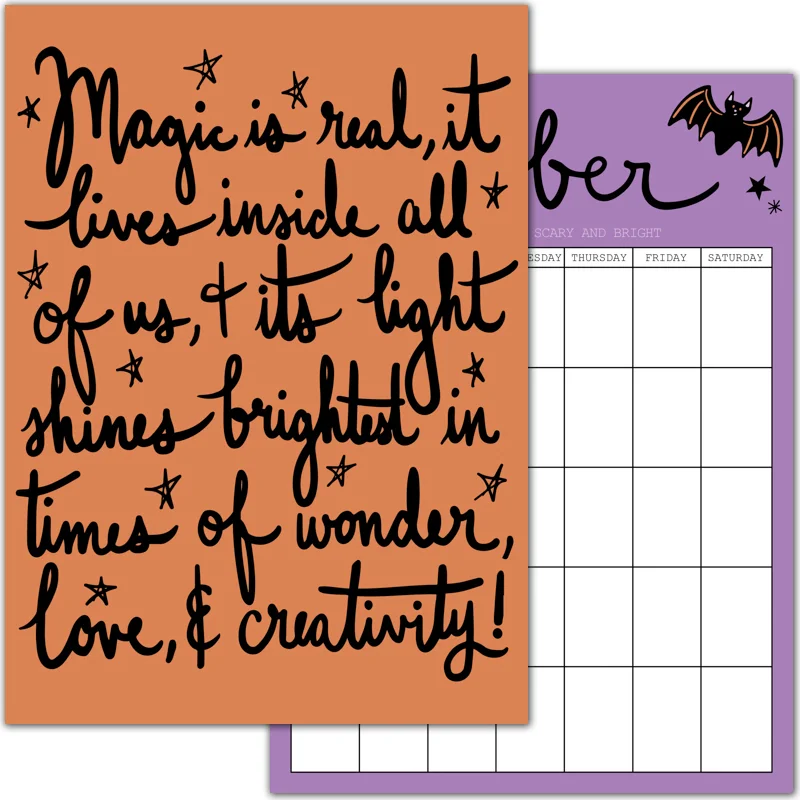 Magic is real, it
lives inside all
of us, & its light
shines brightest in
times of wonder,
love, & creativity!
ber
SCARY AND BRIGHT
ESDAY THURSDAY FRIDAY SATURDAY